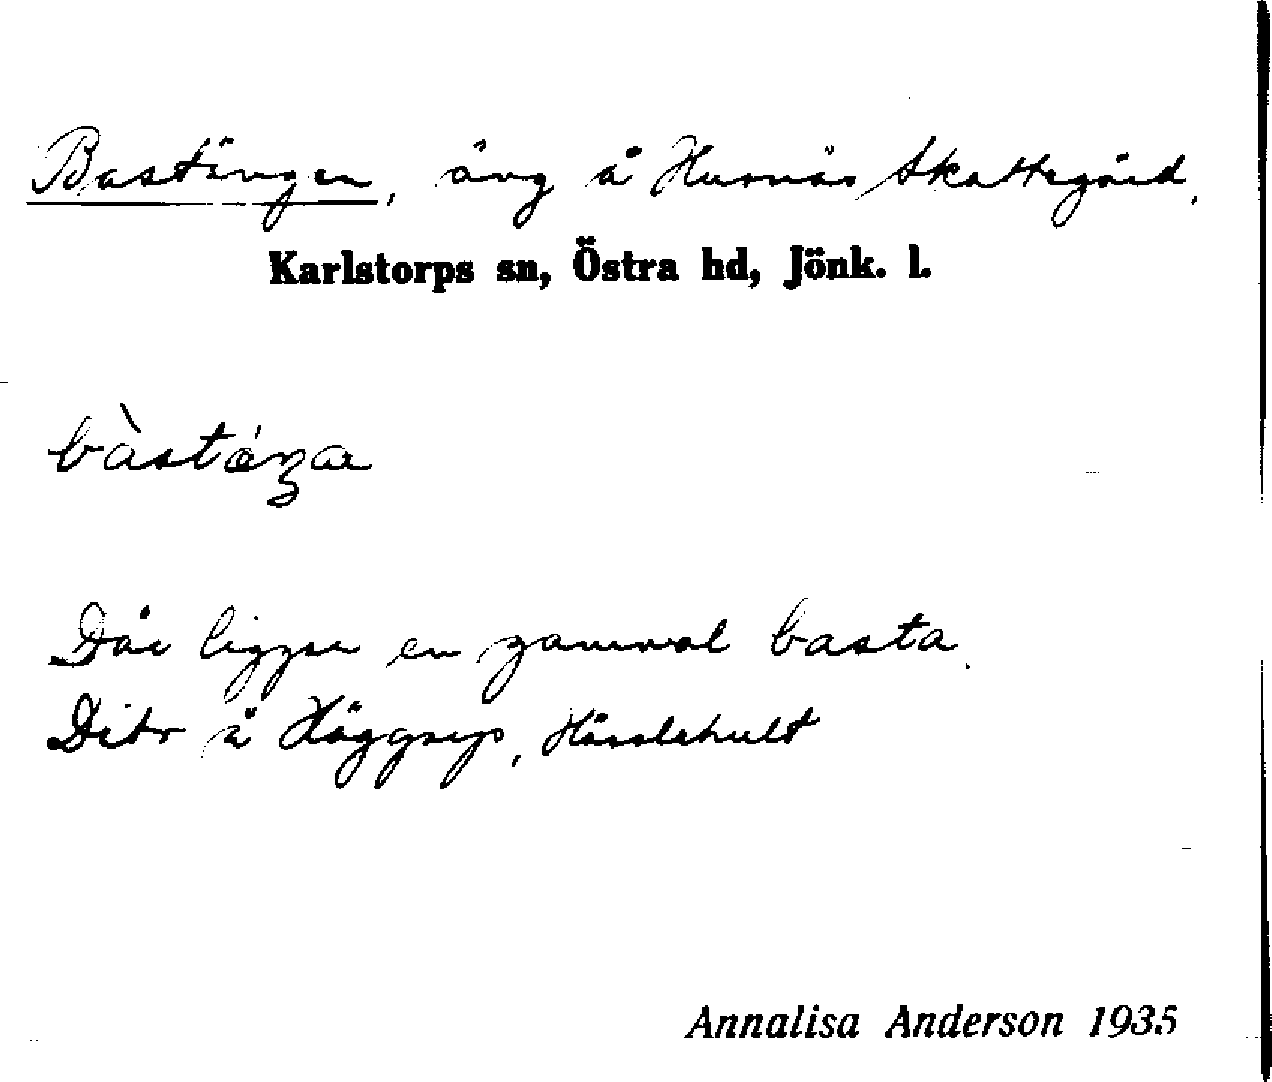 Bastängen, äng å Hursnäs Skattegård,
Karlstorps sn, Östra hd, Jönk. l.
bàstæ´ŋa
Där ligger en gammal basta.
Dito å Häggryp, Hässlehult
Annalisa Anderson 1935